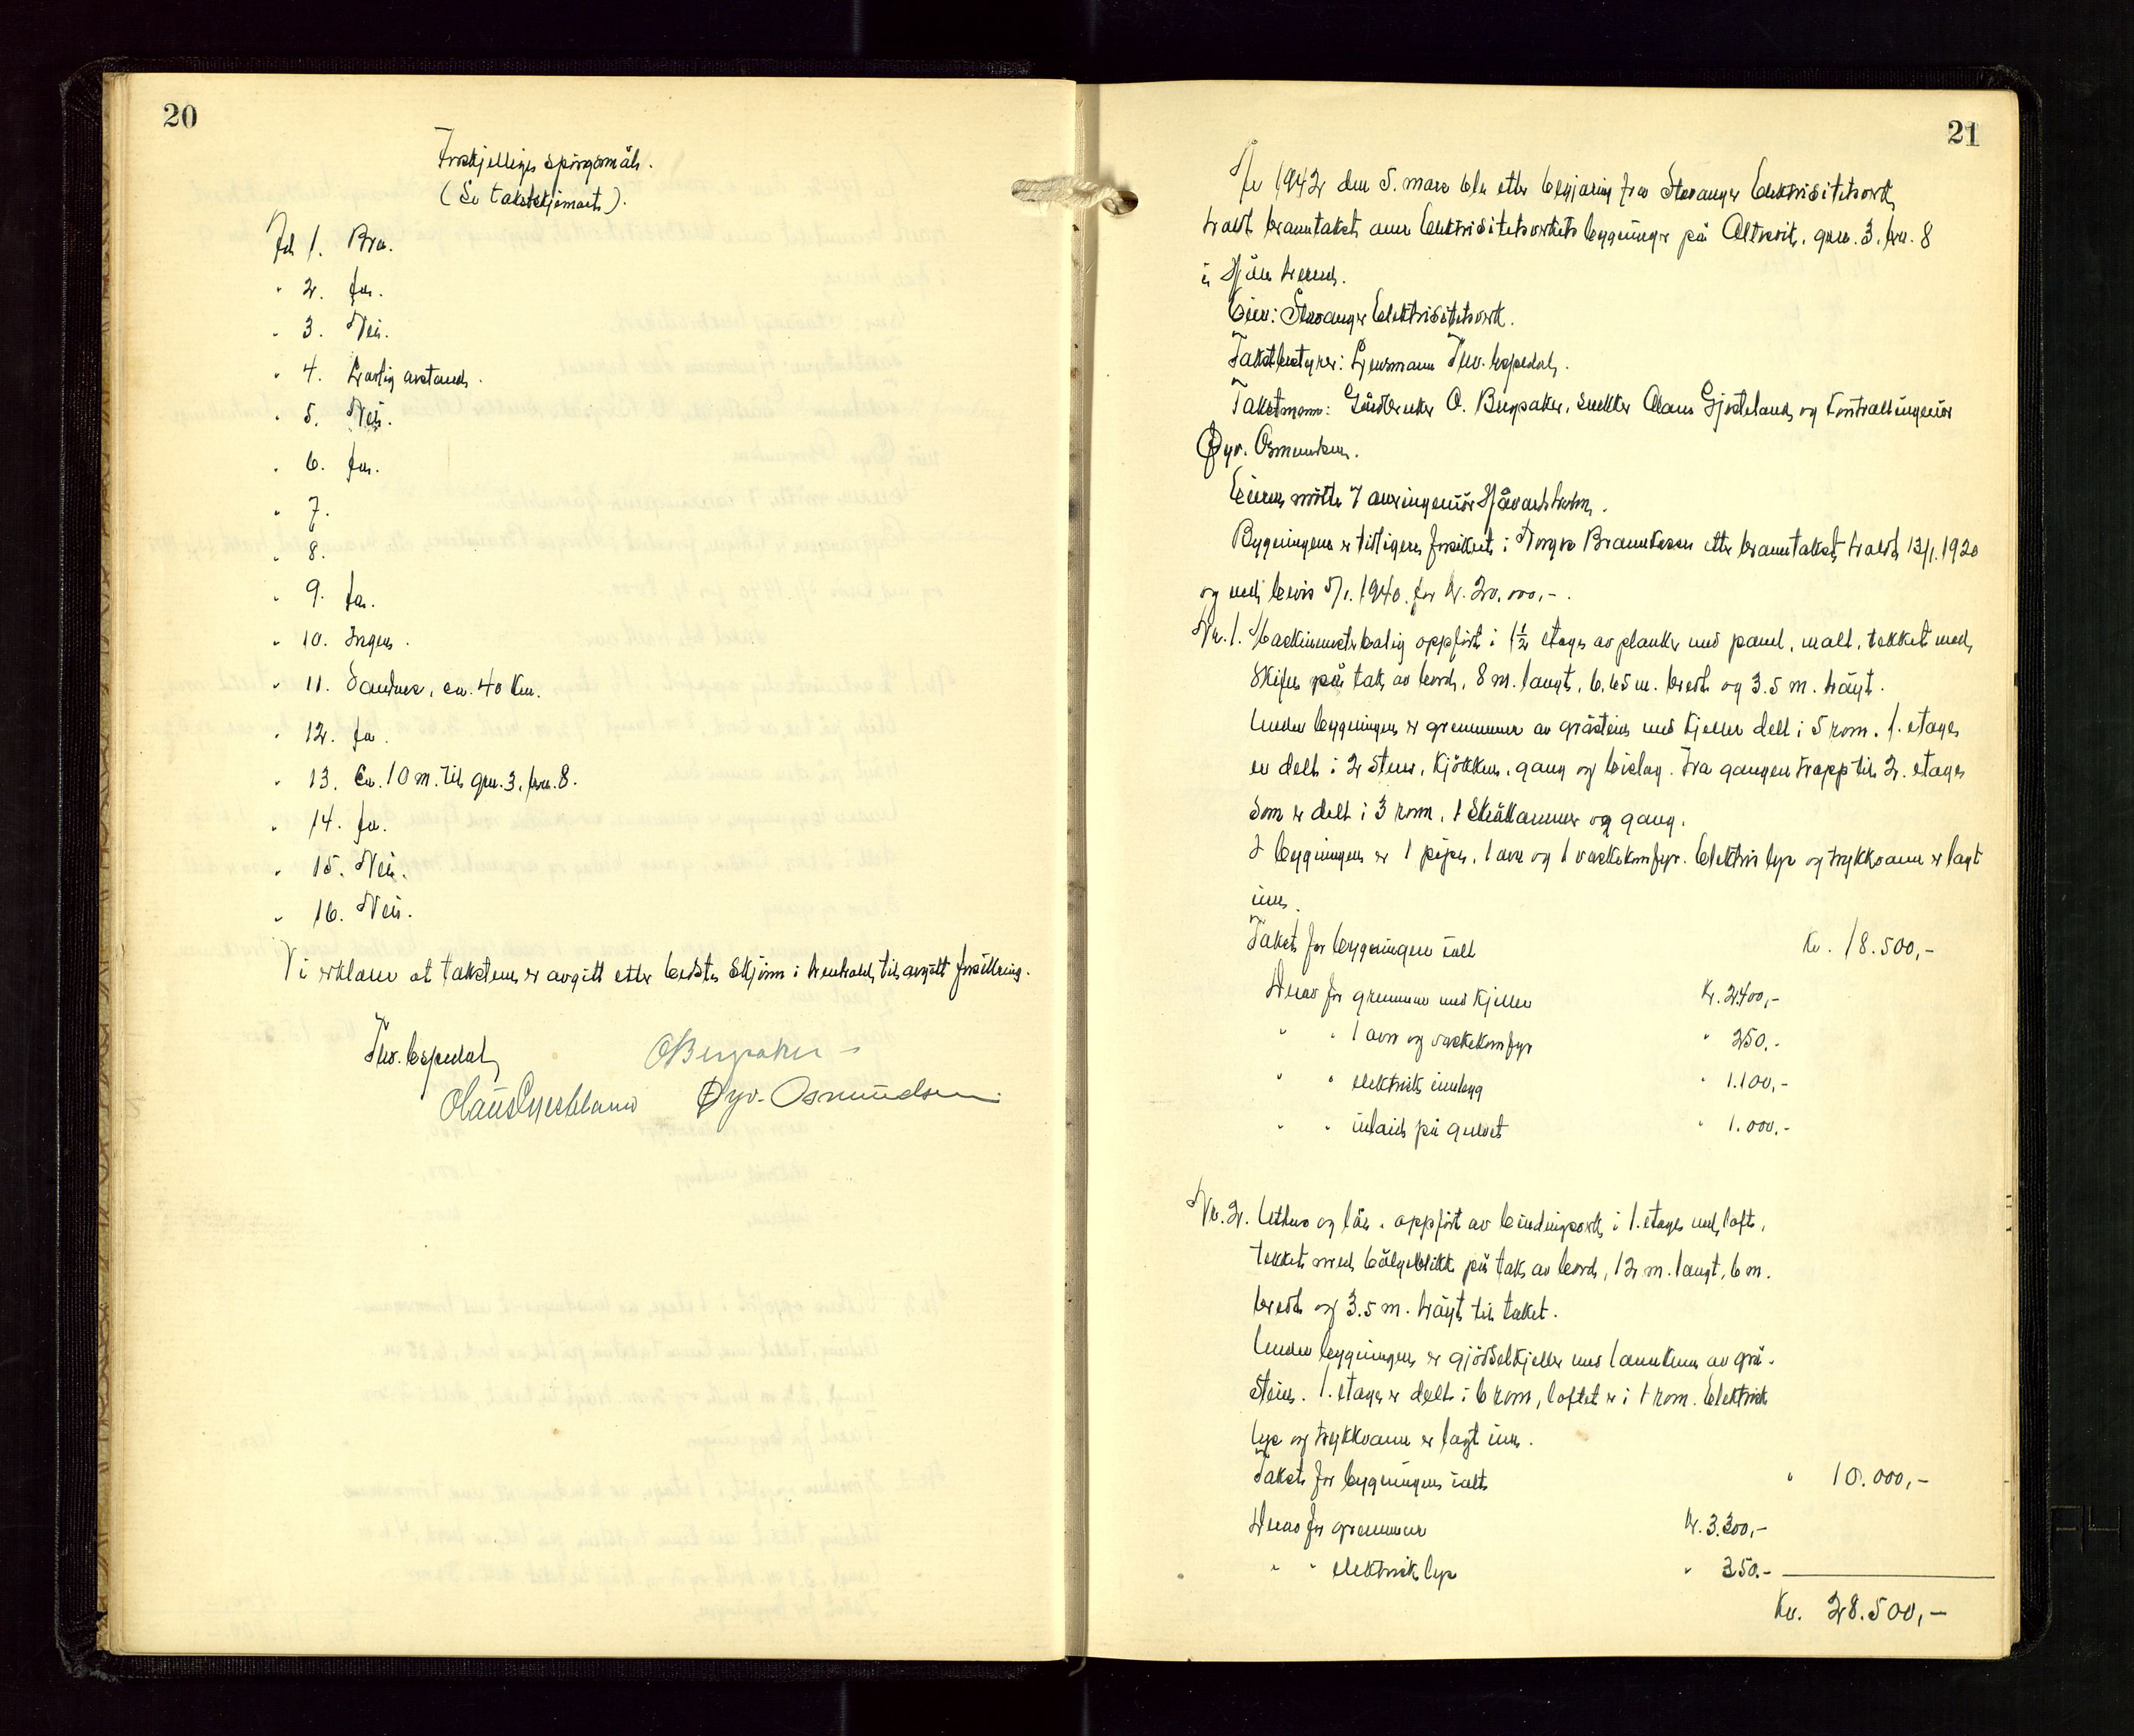 20
Forskjellige spörgsmål.
(Se takstskjemaet).
Til 1. Bra.
" 2. Ja.
" 3. Nei.
" 4. Lovlig avstand.
" 5. Nei.
" 6. Ja.
" 7.
" 8.
" 9. Ja.
" 10. Ingen.
" 11. Sandnes, ca. 40 km.
" 12. Ja.
" 13. Ca. 10 m. til gnr. 3, bnr. 8.
" 14. Ja.
" 15. Nei.
" 16. Nei.
Vi erklærer at taksten er avgitt etter beste skjönn i henhold til avgitt forsikring.
Thv. Espedal
O Bergsaker
Olaus Gjesteland
Øyv. Osmundsen
21
År 1942 den 5. mars ble etter begjæring fra Stavanger Elektrisitetsverk
holdt branntakst over Elektrisitetsverkets bygninger på Oltesvik, gnr. 3, bnr. 8
i Hjåle herred.
Eier: Stavanger Elektrisitetsverk.
Takstbestyrer: Lensmann Thv. Espedal.
Takstmenn: Gårdbruker O. Bergsaker, snekker Olaus Gjesteland og kontrollingeniör
Øyv. Osmundsen.
Eieren mötte v/ overingeniör Håvardsholm.
Bygningene er tidligere forsikret i Norges Brannkasse etter branntakst holdt 13/1. 1920
og ved bevis 5/1. 1940. for kr. 20.000,-.
Nr. 1. Maskinmesterbolig oppfört i 1½ etage av planker med panel, malt, tekket med
skifer på tak av bord, 8 m. langt, 6.65 m. bredt og 3.5 m. höyt.
Under bygningen er grunnmur av gråstein med kjeller delt i 5 rom. 1. etage
er delt i 2 stuer, kjökken, gang og bislag. Fra gangen trapp til 2. etage
som er delt i 3 rom, 1 skråkammer og gang.
I bygningen er 1 pipe, 1 ovn og 1 vaskekomfyr. Elektrisk lys og trykkvann er lagt
inn.
Takst for bygningen ialt Kr. 18.500,-
Herav for grunnmur med kjeller Kr. 2.400,-
" " 1 ovn og vaskekomfyr " 250.-
" " elektrisk innlegg " 1.100,-
" " inlaid på gulvet " 1.000.-
Nr. 2. Uthus og lån, oppfört av bindingsverk i 1. etage med loft,
tekket med bölgeblikk på tak av bord, 12 m. langt, 6 m.
bredt og 3.5 m. höyt til taket.
Under bygningen er gjödselkjeller med landkum av grå-
stein. 1. etage er delt i 6 rom, loftet er i 1 rom. Elektrisk
lys og trykkvann er lagt inn.
Takst for bygningen ialt " 10.000,-
Herav for grunnmur Kr. 3.300,-
" " elektrisk lys " 350.-
Kr. 28.500,-